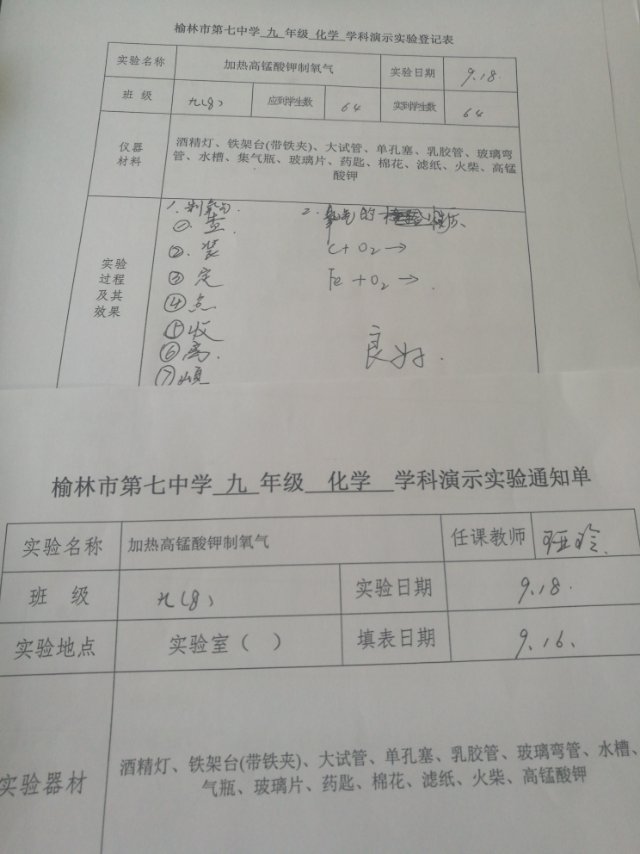 榆林市第七中学 九 年级 化学 学科演示实验登记表
实验名称 加热高锰酸钾制氧气 实验日期 9.18
班 级 九(8) 应到学生数 64 实到学生数 64
仪器材料 酒精灯、铁架台(带铁夹)、大试管、单孔塞、乳胶管、玻璃弯
管、水槽、集气瓶、玻璃片、药匙、棉花、滤纸、火柴、高锰
酸钾
实验
过程
及其
效果
1. 制氧气. 2. 氧气的
① 查.
②. 装 C + O₂ →
③ 定 Fe + O₂ → .
④ 点
⑤ 收
⑥ 离. 良好.
⑦
榆林市第七中学 九 年级 化学 学科演示实验通知单
实验名称 加热高锰酸钾制氧气 任课教师
班 级 九(8) 实验日期 9.18.
实验地点 实验室( ) 填表日期 9.16.
实验器材 酒精灯、铁架台(带铁夹)、大试管、单孔塞、乳胶管、玻璃弯管、水槽、
气瓶、玻璃片、药匙、棉花、滤纸、火柴、高锰酸钾